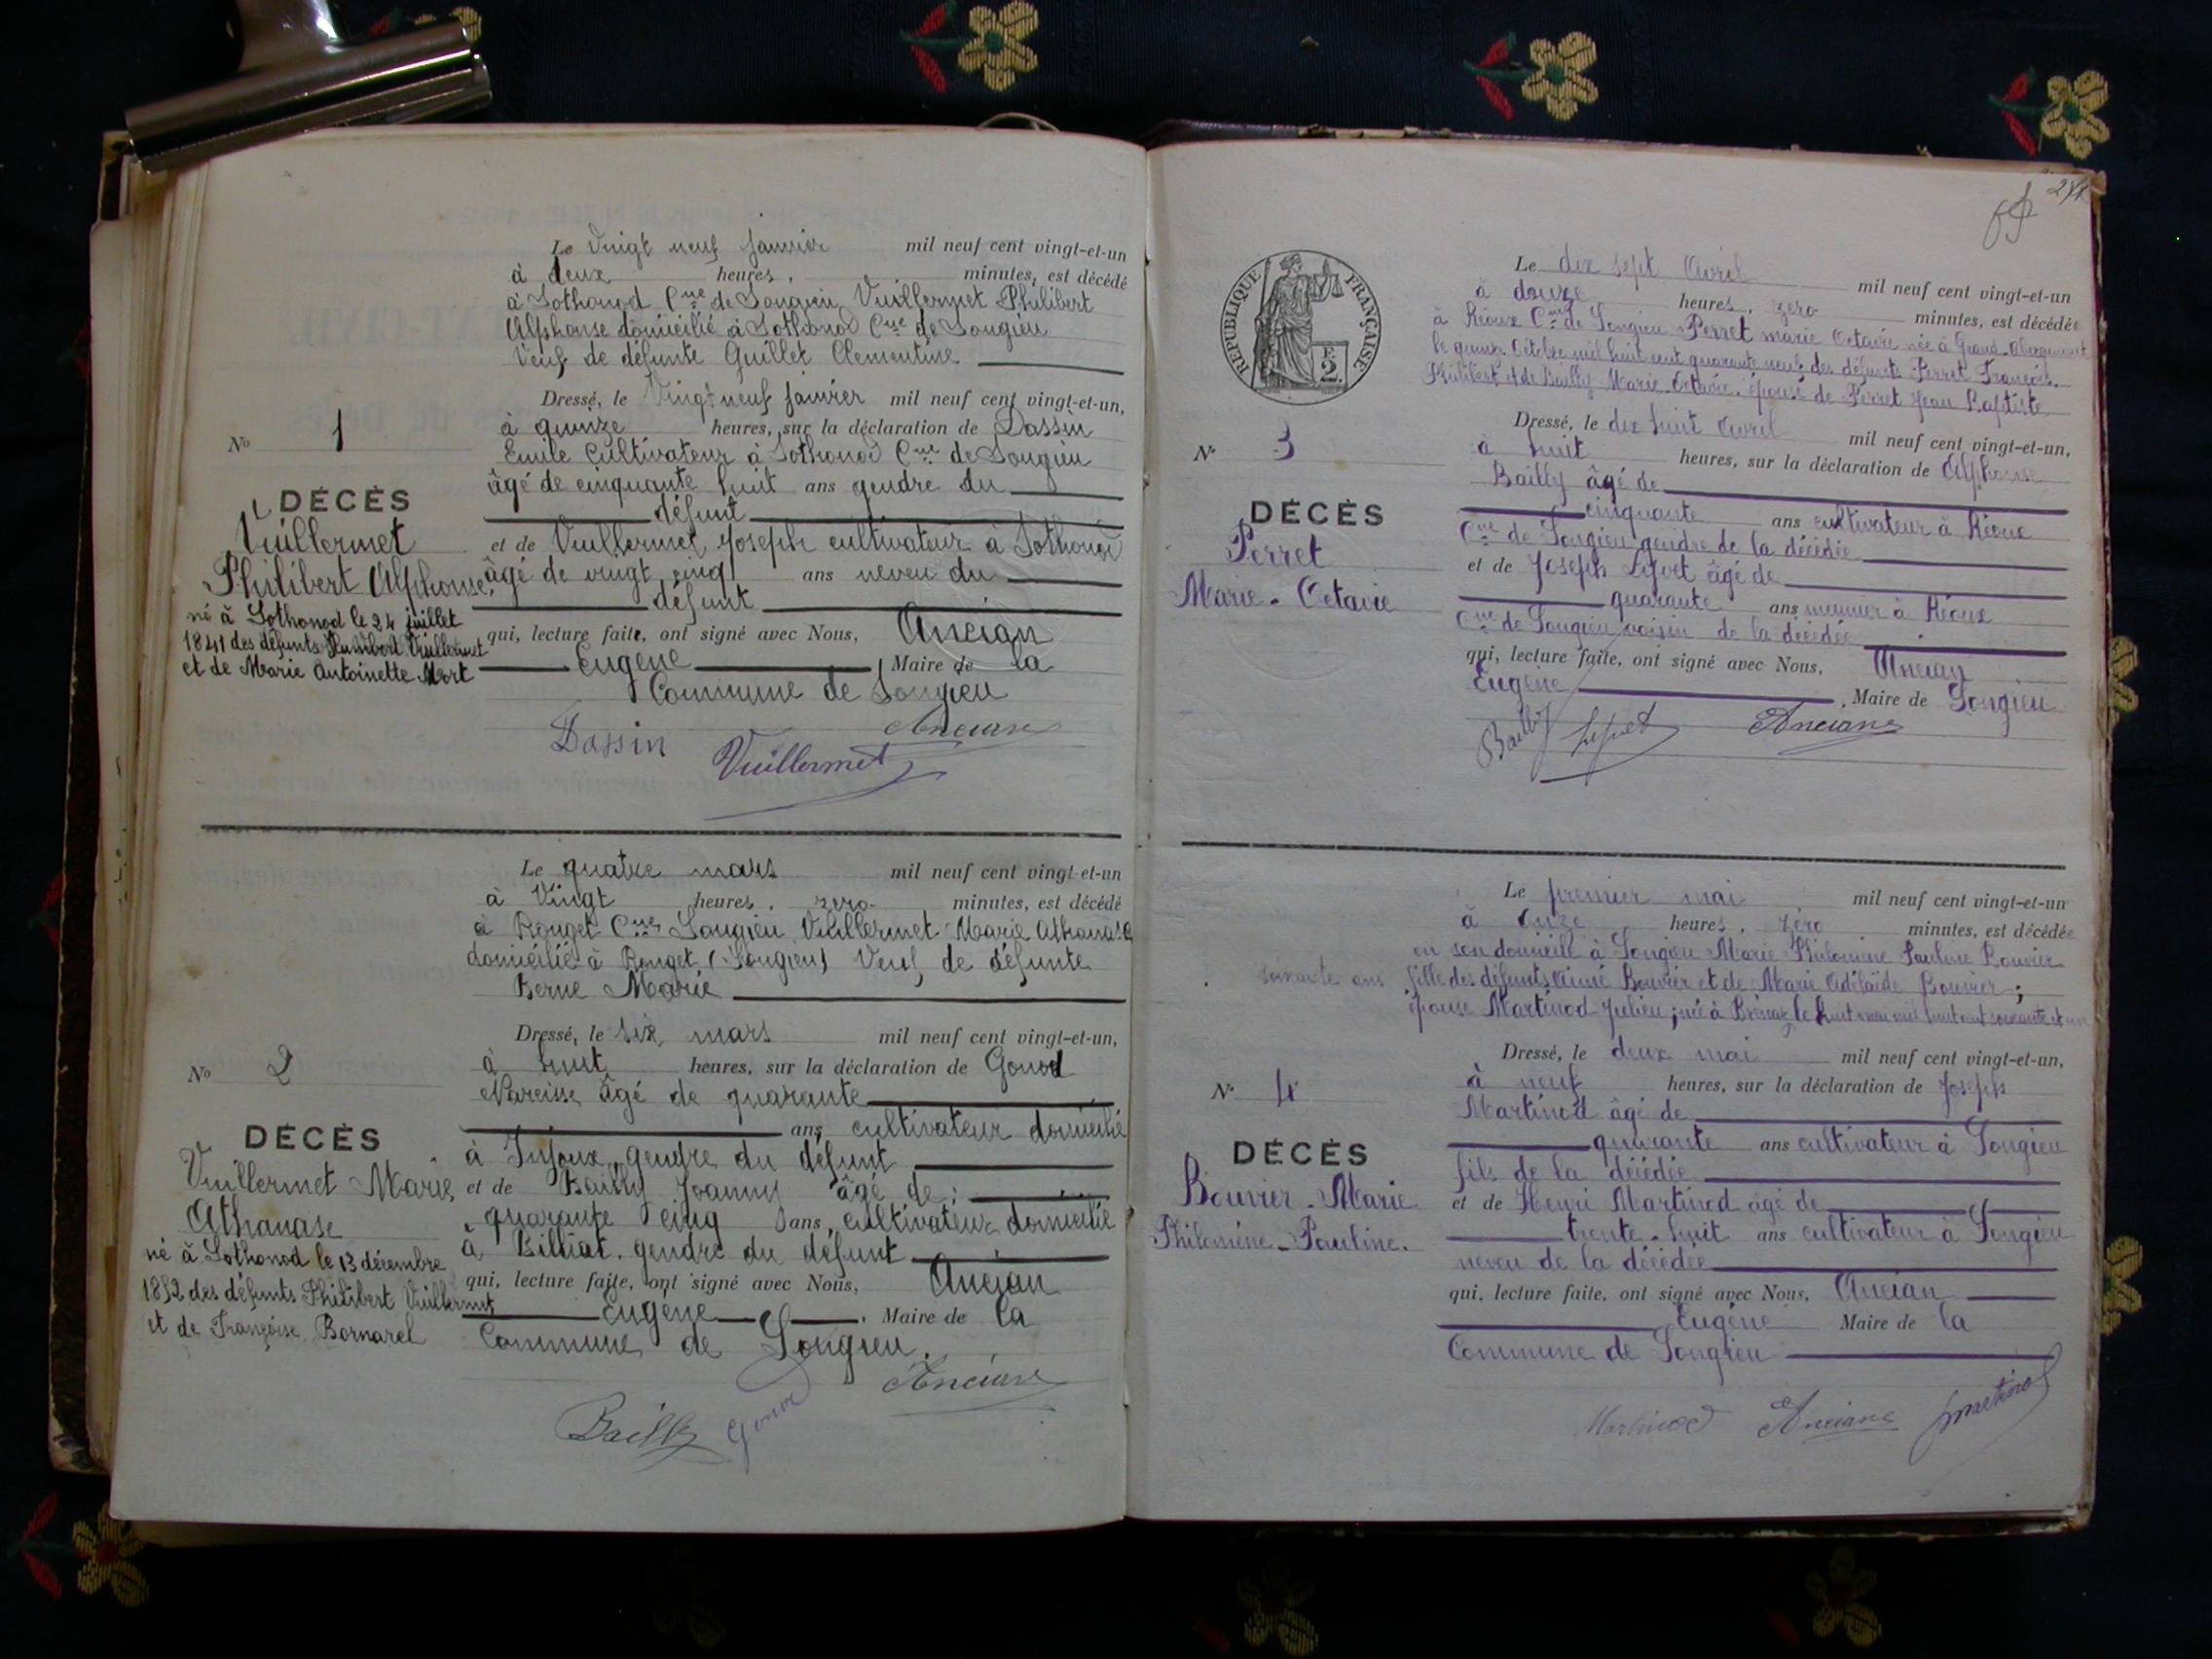 Le Vingt neuf Janvier mil neuf cent vingt-et-un
à deux heures, minutes, est décédé
à Sothonod Cne de Songieu Vuillermet Philibert
Alphonse domicilié à Sothonod Cne de Songieu
Veuf de défunte Guillet Clementine
Dressé, le Vingt neuf janvier mil neuf cent vingt-et-un,
à quinze heures, sur la déclaration de Dassin
Emile Cultivateur à Sothonod Cne de Songieu
âgé de cinquante huit ans gendre du
défunt
et de Vuillermet Joseph cultivateur à Sothonod
âgé de vingt cinq ans neveu du
défunt
qui, lecture faite, ont signé avec Nous, Ancian
Eugène Maire de la
Commune de Songieu
Dassin Vuillermet Anciane
No 1
DÉCÈS
Vuillermet
Philibert Alphonse,
né à Sothonod le 24 juillet
1841 des défunts Humbert Vuillermet
et de Marie Antoinette Mort
Le quatre mars mil neuf cent vingt-et-un
à Vingt heures, zero minutes, est décédé
à Rouget Cne Songieu Vuillermet Marie Athanase
domicilié à Rouget (Songieu) Veuf de défunte
Berne Marie
Dressé, le six mars mil neuf cent vingt-et-un,
à huit heures, sur la déclaration de Gonod
Narcisse âgé de quarante
ans, cultivateur domicilié
à Injoux, gendre du défunt
et de Bailly Joanny âgé de
quarante cinq ans, cultivateur domicilié
à Billiat, gendre du défunt
qui, lecture faite, ont signé avec Nous, Ancian
Eugène, Maire de la
Commune de Songieu.
Bailly Gonod Anciane
No 2
DÉCÈS
Vuillermet Marie
Athanase
né à Sothonod le 13 décembre
1852 des défunts Philibert Vuillermet
et de Françoise Bornarel
271
RÉPUBLIQUE FRANÇAISE
F
2
Le dix sept Avril mil neuf cent vingt-et-un
à douze heures, zero minutes, est décédée
à Réoux Cne de Songieu Perret marie Octavie née à Grand-Abergement
le quinze Octobre mil huit cent quarante neuf des défunts Perret François
Philibert et de Bailly Marie Octavie, épouse de Perret Jean Baptiste
Dressé, le dix huit Avril mil neuf cent vingt-et-un,
à huit heures, sur la déclaration de Alphonse
Bailly âgé de
cinquante ans cultivateur à Réoux
Cne de Songieu gendre de la décédée
et de Joseph âgé de
quarante ans meunier à Réoux
Cne de Songieu voisin de la décédée
qui, lecture faite, ont signé avec Nous, Ancian
Eugène, Maire de Songieu
Bailly Anciane
No 3
DÉCÈS
Perret
Marie-Octavie
Le premier mai mil neuf cent vingt-et-un
à onze heures, zéro minutes, est décédée
en son domicile à Songieu Marie Philomène Pauline Bouvier
soixante ans fille des défunts Aimé Bouvier et de Marie Adélaïde Bouvier ;
épouse Martinod Julien ; née à Brénaz le huit mai mil huit cent soixante et un
Dressé, le deux mai mil neuf cent vingt-et-un,
à neuf heures, sur la déclaration de Joseph
Martinod âgé de
quarante ans cultivateur à Songieu
fils de la décédée
et de Henri Martinod âgé de
trente-huit ans cultivateur à Songieu
neveu de la décédée
qui, lecture faite, ont signé avec Nous, Ancian
Eugène Maire de la
Commune de Songieu
Martinod Anciane Martinod
No 4
DÉCÈS
Bouvier-Marie
Philomène-Pauline.